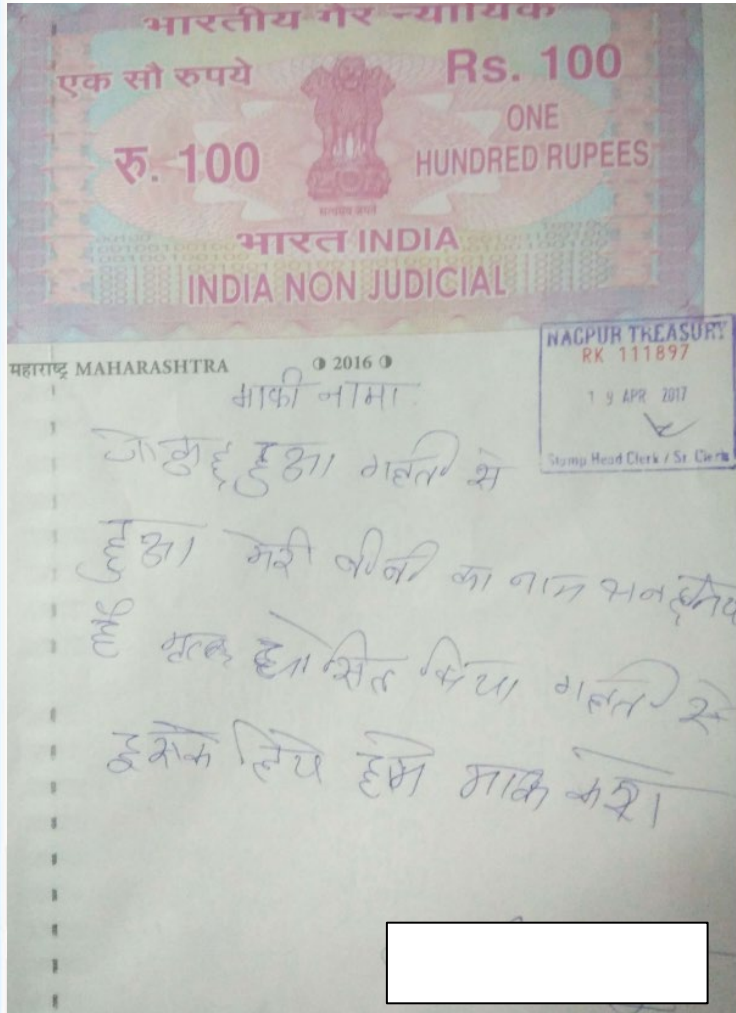 भारतीय गैर न्यायिक
एक सौ रुपये
Rs. 100
रु. 100
ONE
HUNDRED RUPEES
सत्यमेव जयते
भारत INDIA
INDIA NON JUDICIAL
महाराष्ट्र MAHARASHTRA
2016
NAGPUR TREASURY
RK 111897
19 APR 2017
Stamp Head Clerk / Sr. Clerk
माफी नामा
जो कुछ हुआ गलती से
हुआ मेरी बीबी का नाम
है मृतक घोसित किया गलती से
इसके लिये हमे माफ करे।